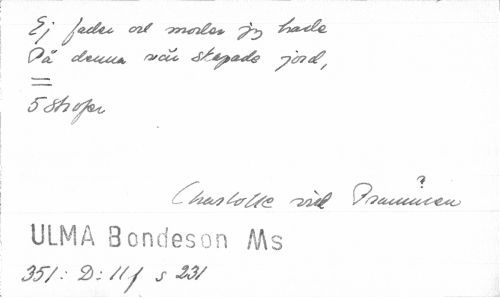 Ej fader och moder jag hade
På denna vår skapade jord,
=
5 strofer
?
Charlotte vid
ULMA Bondeson Ms
351: D: 11 f s 231